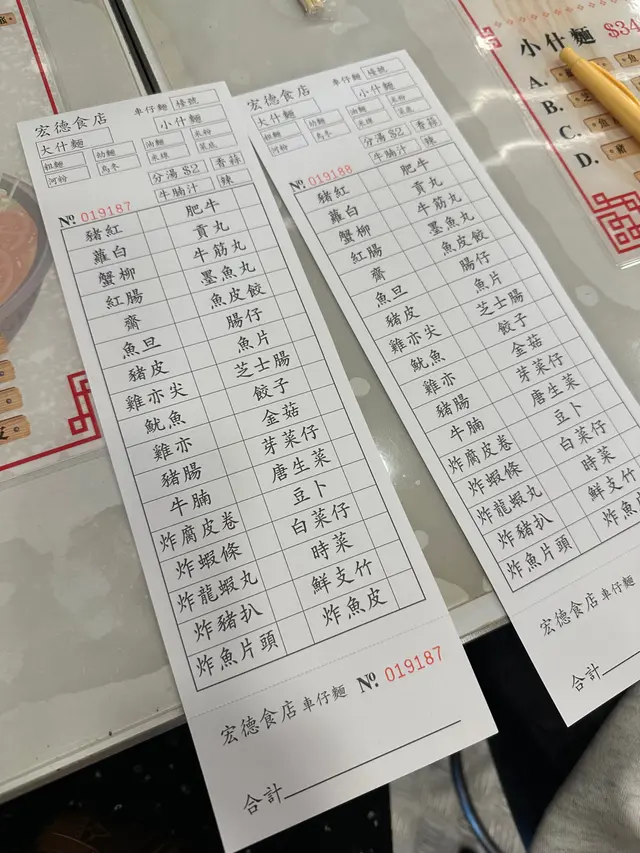 宏德食店 車仔麵 樓號
大什麵 小什麵
粗麵 幼麵 油麵 米粉
河粉 烏冬 米線 菜底
分湯 $2 香蒜
牛腩汁 辣
№ 019187
豬紅 肥牛
蘿白 貢丸
蟹柳 牛筋丸
紅腸 墨魚丸
齋 魚皮餃
魚旦 腸仔
豬皮 魚片
雞亦尖 芝士腸
魷魚 餃子
雞亦 金菇
豬腸 芽菜仔
牛腩 唐生菜
炸腐皮卷 豆卜
炸蝦條 白菜仔
炸龍蝦丸 時菜
炸豬扒 鮮支竹
炸魚片頭 炸魚皮
宏德食店 車仔麵 № 019187
合計
宏德食店 車仔麵 樓號
大什麵 小什麵
粗麵 幼麵 油麵 米粉
河粉 烏冬 米線 菜底
分湯 $2 香蒜
牛腩汁 辣
№ 019188
豬紅 肥牛
蘿白 貢丸
蟹柳 牛筋丸
紅腸 墨魚丸
齋 魚皮餃
魚旦 腸仔
豬皮 魚片
雞亦尖 芝士腸
魷魚 餃子
雞亦 金菇
豬腸 芽菜仔
牛腩 唐生菜
炸腐皮卷 豆卜
炸蝦條 白菜仔
炸龍蝦丸 時菜
炸豬扒 鮮支竹
炸魚片頭 炸魚
宏德食店 車仔麵
合計
小什麵 $34
A.
B.
C.
D.